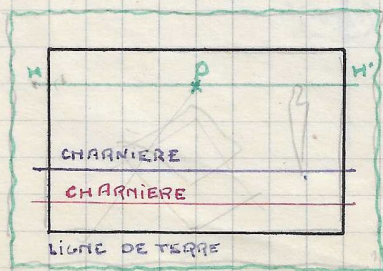 H P H'
CHARNIERE
CHARNIERE
LIGNE DE TERRE